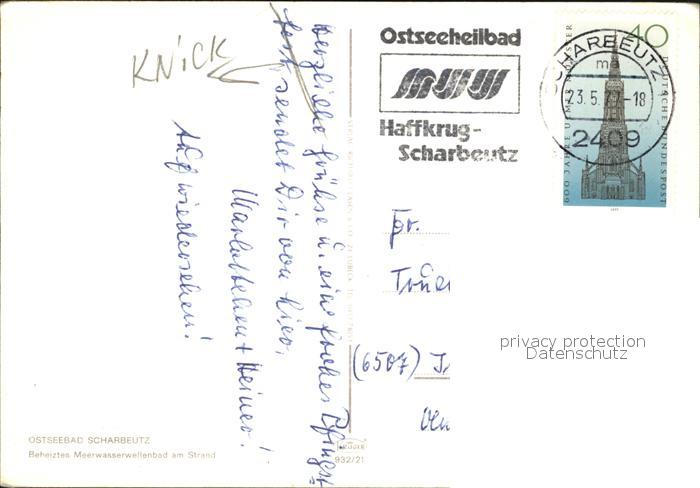 KNICK
Herzliche Grüße u. eine frohes Pfingst-
fest, sendet Dir von hier,
Marlottchen + Heiner!
Auf wiedersehen!
Ostseeheilbad
Haffkrug-
Scharbeutz
SCHARBEUTZ
23.5.77-18
2409
40
600 JAHRE ULMER MÜNSTER
DEUTSCHE BUNDESPOST
1977
Fr.
(6507)
privacy protection
Datenschutz
OSTSEEBAD SCHARBEUTZ
Beheiztes Meerwasserwellenbad am Strand
932/21